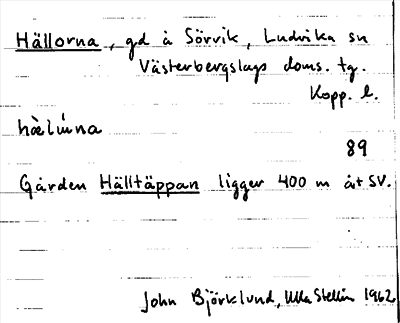 Hällorna, gd å Sörvik, Ludvika sn
Västerbergslags doms. tg.
Kopp. l.
hä̀lúna
89
Gården Hälltäppan ligger 400 m åt SV.
John Björklund, Ulla Stellin 1962